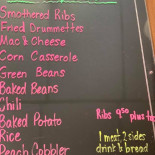 Smothered Ribs
Fried Drummettes
Mac & Cheese
Corn Casserole
Green Beans
Baked Beans
Chili
Baked Potato
Rice
Peach Cobbler
Ribs 9⁵⁰ plus
1 meat, 2 sides
drink & bread